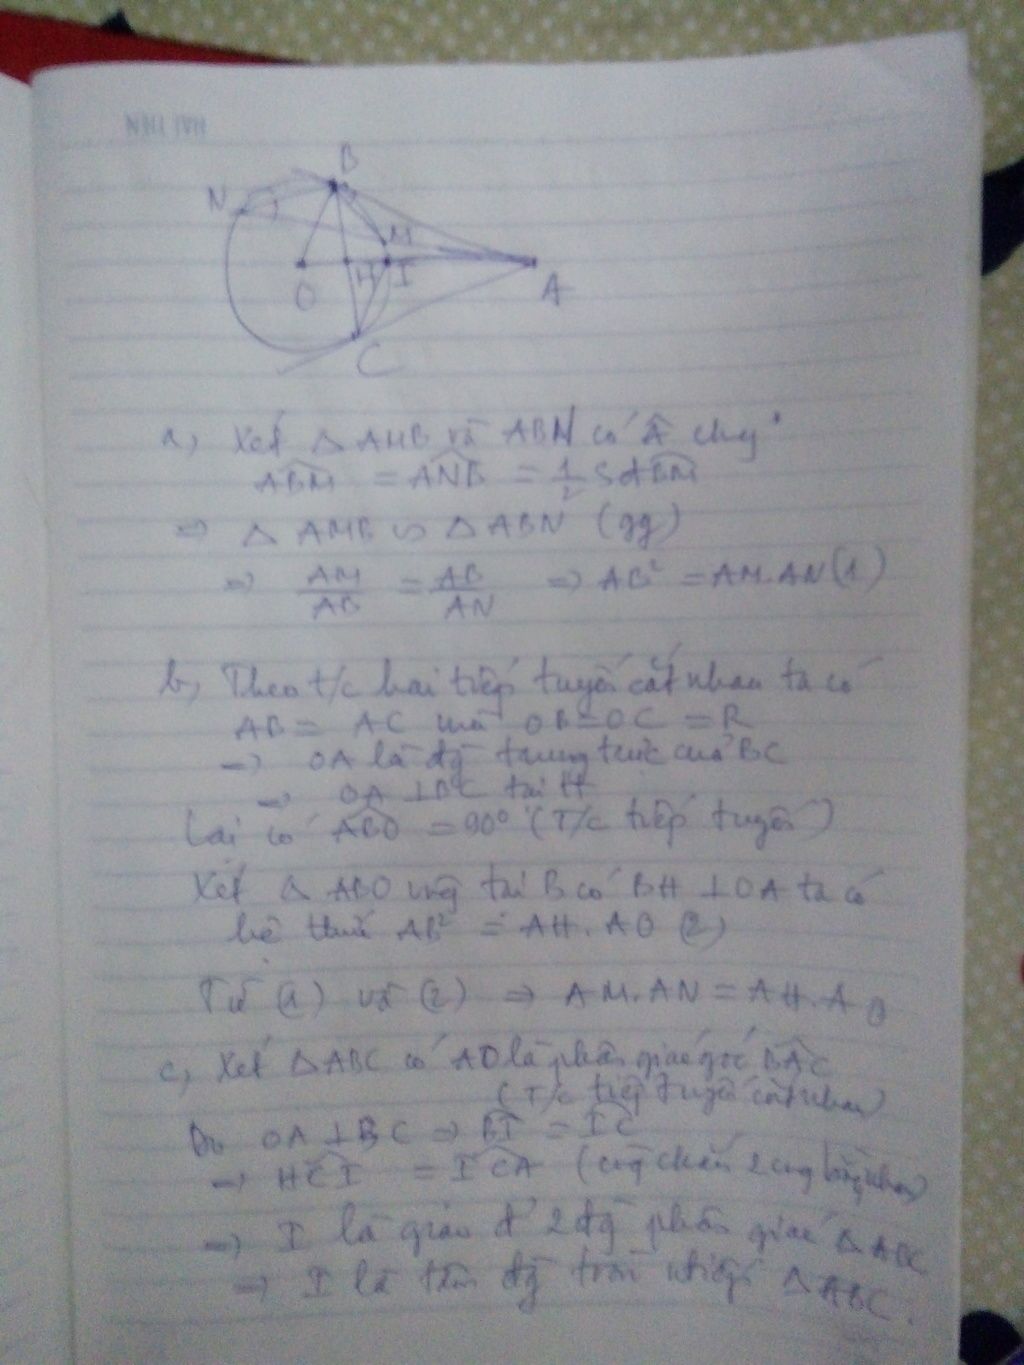 HẢI TIẾN
B
N
M
O H I
A
C
a, Xét △ AMB và ABN có Â chung
ABM = ANB = 1/2 sđ BM
=> △ AMB ∽ △ ABN (gg)
=> AM/AB = AB/AN => AB² = AM.AN (1)
b, Theo t/c hai tiếp tuyến cắt nhau ta có
AB = AC mà OB = OC = R
=> OA là đg trung trực của BC
=> OA ⊥ BC tại H
Lại có ABO = 90° (T/c tiếp tuyến)
Xét △ ABO vuông tại B có BH ⊥ OA ta có
hệ thức AB² = AH.AO (2)
Từ (1) và (2) => AM.AN = AH.AO
c, Xét △ABC có AO là phân giác góc BAC
(T/c tiếp tuyến cắt nhau)
Do OA ⊥ BC => BI = IC
=> HCI = ICA (cùng chắn 2 cung bằng nhau)
=> I là giao đ' 2 đg phân giác △ABC
=> I là tâm đg tròn nội tiếp △ABC.